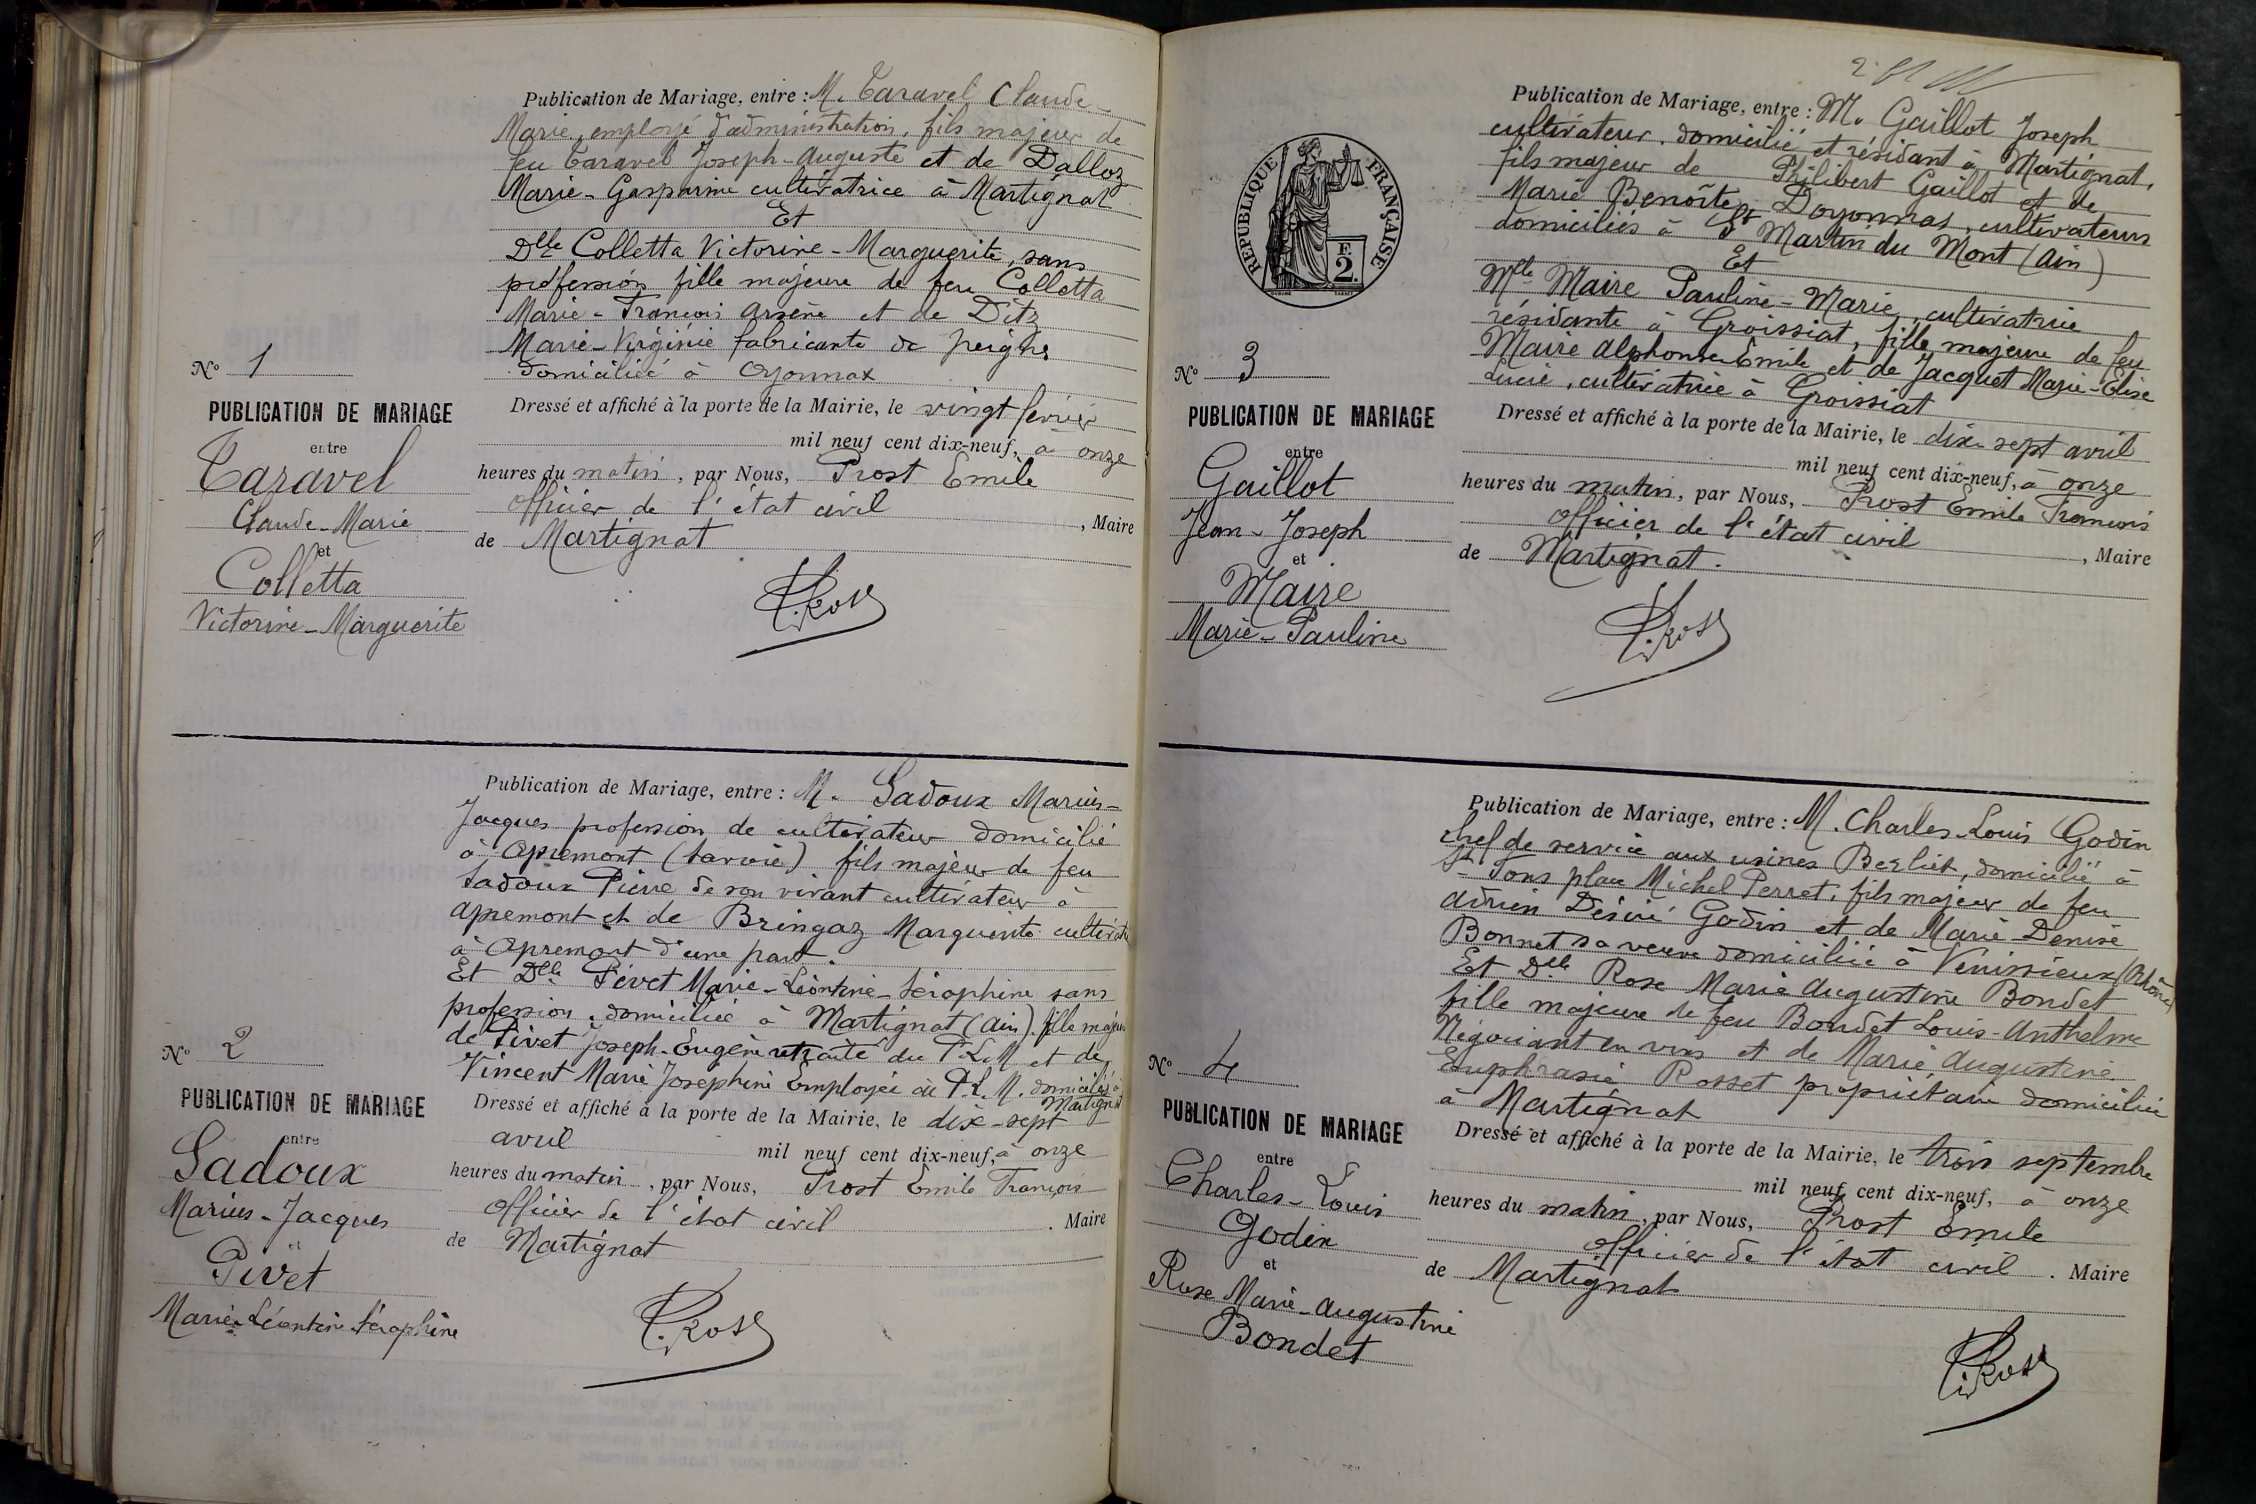 Publication de Mariage, entre : M. Caravel Claude-
Marie, employé d'administration, fils majeur de
feu Caravel Joseph-Auguste et de Dalloz
Marie-Gasparine cultivatrice à Martignat
Et
Dlle Colletta Victorine-Marguerite, sans
profession fille majeure de feu Colletta
Marie-François Arsène et de Ditz
Marie-Virginie fabricante de peignes
domiciliée à Oyonnax
Dressé et affiché à la porte de la Mairie, le vingt février
mil neuf cent dix-neuf, à onze
heures du matin, par Nous, Prost Emile
officier de l'état civil , Maire
de Martignat
Prost
No 1
PUBLICATION DE MARIAGE
entre
Caravel
Claude-Marie
et
Colletta
Victorine-Marguerite
Publication de Mariage, entre : M. Sadoux Marius-
Jacques profession de cultivateur domicilié
à Apremont (Savoie) fils majeur de feu
Sadoux Pierre de son vivant cultivateur à
Apremont et de Bringaz Marguerite
à Apremont d'une part.
Et Dlle Pivet Marie-Léontine-Séraphine sans
profession, domiciliée à Martignat (Ain). fille majeure
de Pivet Joseph-Eugène retraité du P.L.M et de
Vincent Marie Joséphine Employée au P.L.M. domiciliés à
Martignat
Dressé et affiché à la porte de la Mairie, le dix-sept
avril mil neuf cent dix-neuf, à onze
heures du matin, par Nous, Prost Emile François
officier de l'état civil . Maire
de Martignat
Prost
No 2
PUBLICATION DE MARIAGE
entre
Sadoux
Marius-Jacques
et
Pivet
Marie-Léontine Séraphine
REPUBLIQUE FRANÇAISE
F.
2.
Publication de Mariage, entre : M. Gaillot Joseph
cultivateur, domicilié et résidant à Martignat,
fils majeur de Philibert Gaillot et de
Marie Benoîte Doyonnas, cultivateurs
domiciliés à St Martin du Mont (Ain)
Et
Mlle Maire Pauline-Marie, cultivatrice
résidante à Groissiat, fille majeure de feu
Maire Alphonse Emile et de Jacquet Marie-Elise
Lucie, cultivatrice à Groissiat
Dressé et affiché à la porte de la Mairie, le dix-sept avril
mil neuf cent dix-neuf, à onze
heures du matin, par Nous, Prost Emile François
officier de l'état civil , Maire
de Martignat.
Prost
No 3
PUBLICATION DE MARIAGE
entre
Gaillot
Jean-Joseph
et
Maire
Marie-Pauline
Publication de Mariage, entre : M. Charles-Louis Godin
chef de service aux usines Berliet, domicilié à
St Fons place Michel Perret, fils majeur de feu
Adrien Désiré Godin et de Marie Denise
Bonnet sa veuve domiciliée à Vénissieux (Rhône)
Et Dlle Rose Marie Augustine Bondet
fille majeure de feu Bondet Louis-Anthelme
Négociant en vins et de Marie Augustine
Euphrasie Rosset propriétaire domiciliée
à Martignat
Dressé et affiché à la porte de la Mairie, le trois septembre
mil neuf cent dix-neuf, à onze
heures du matin, par Nous, Prost Emile
officier de l'état civil . Maire
de Martignat
Prost
No 4
PUBLICATION DE MARIAGE
entre
Charles-Louis
Godin
et
Rose Marie-Augustine
Bondet